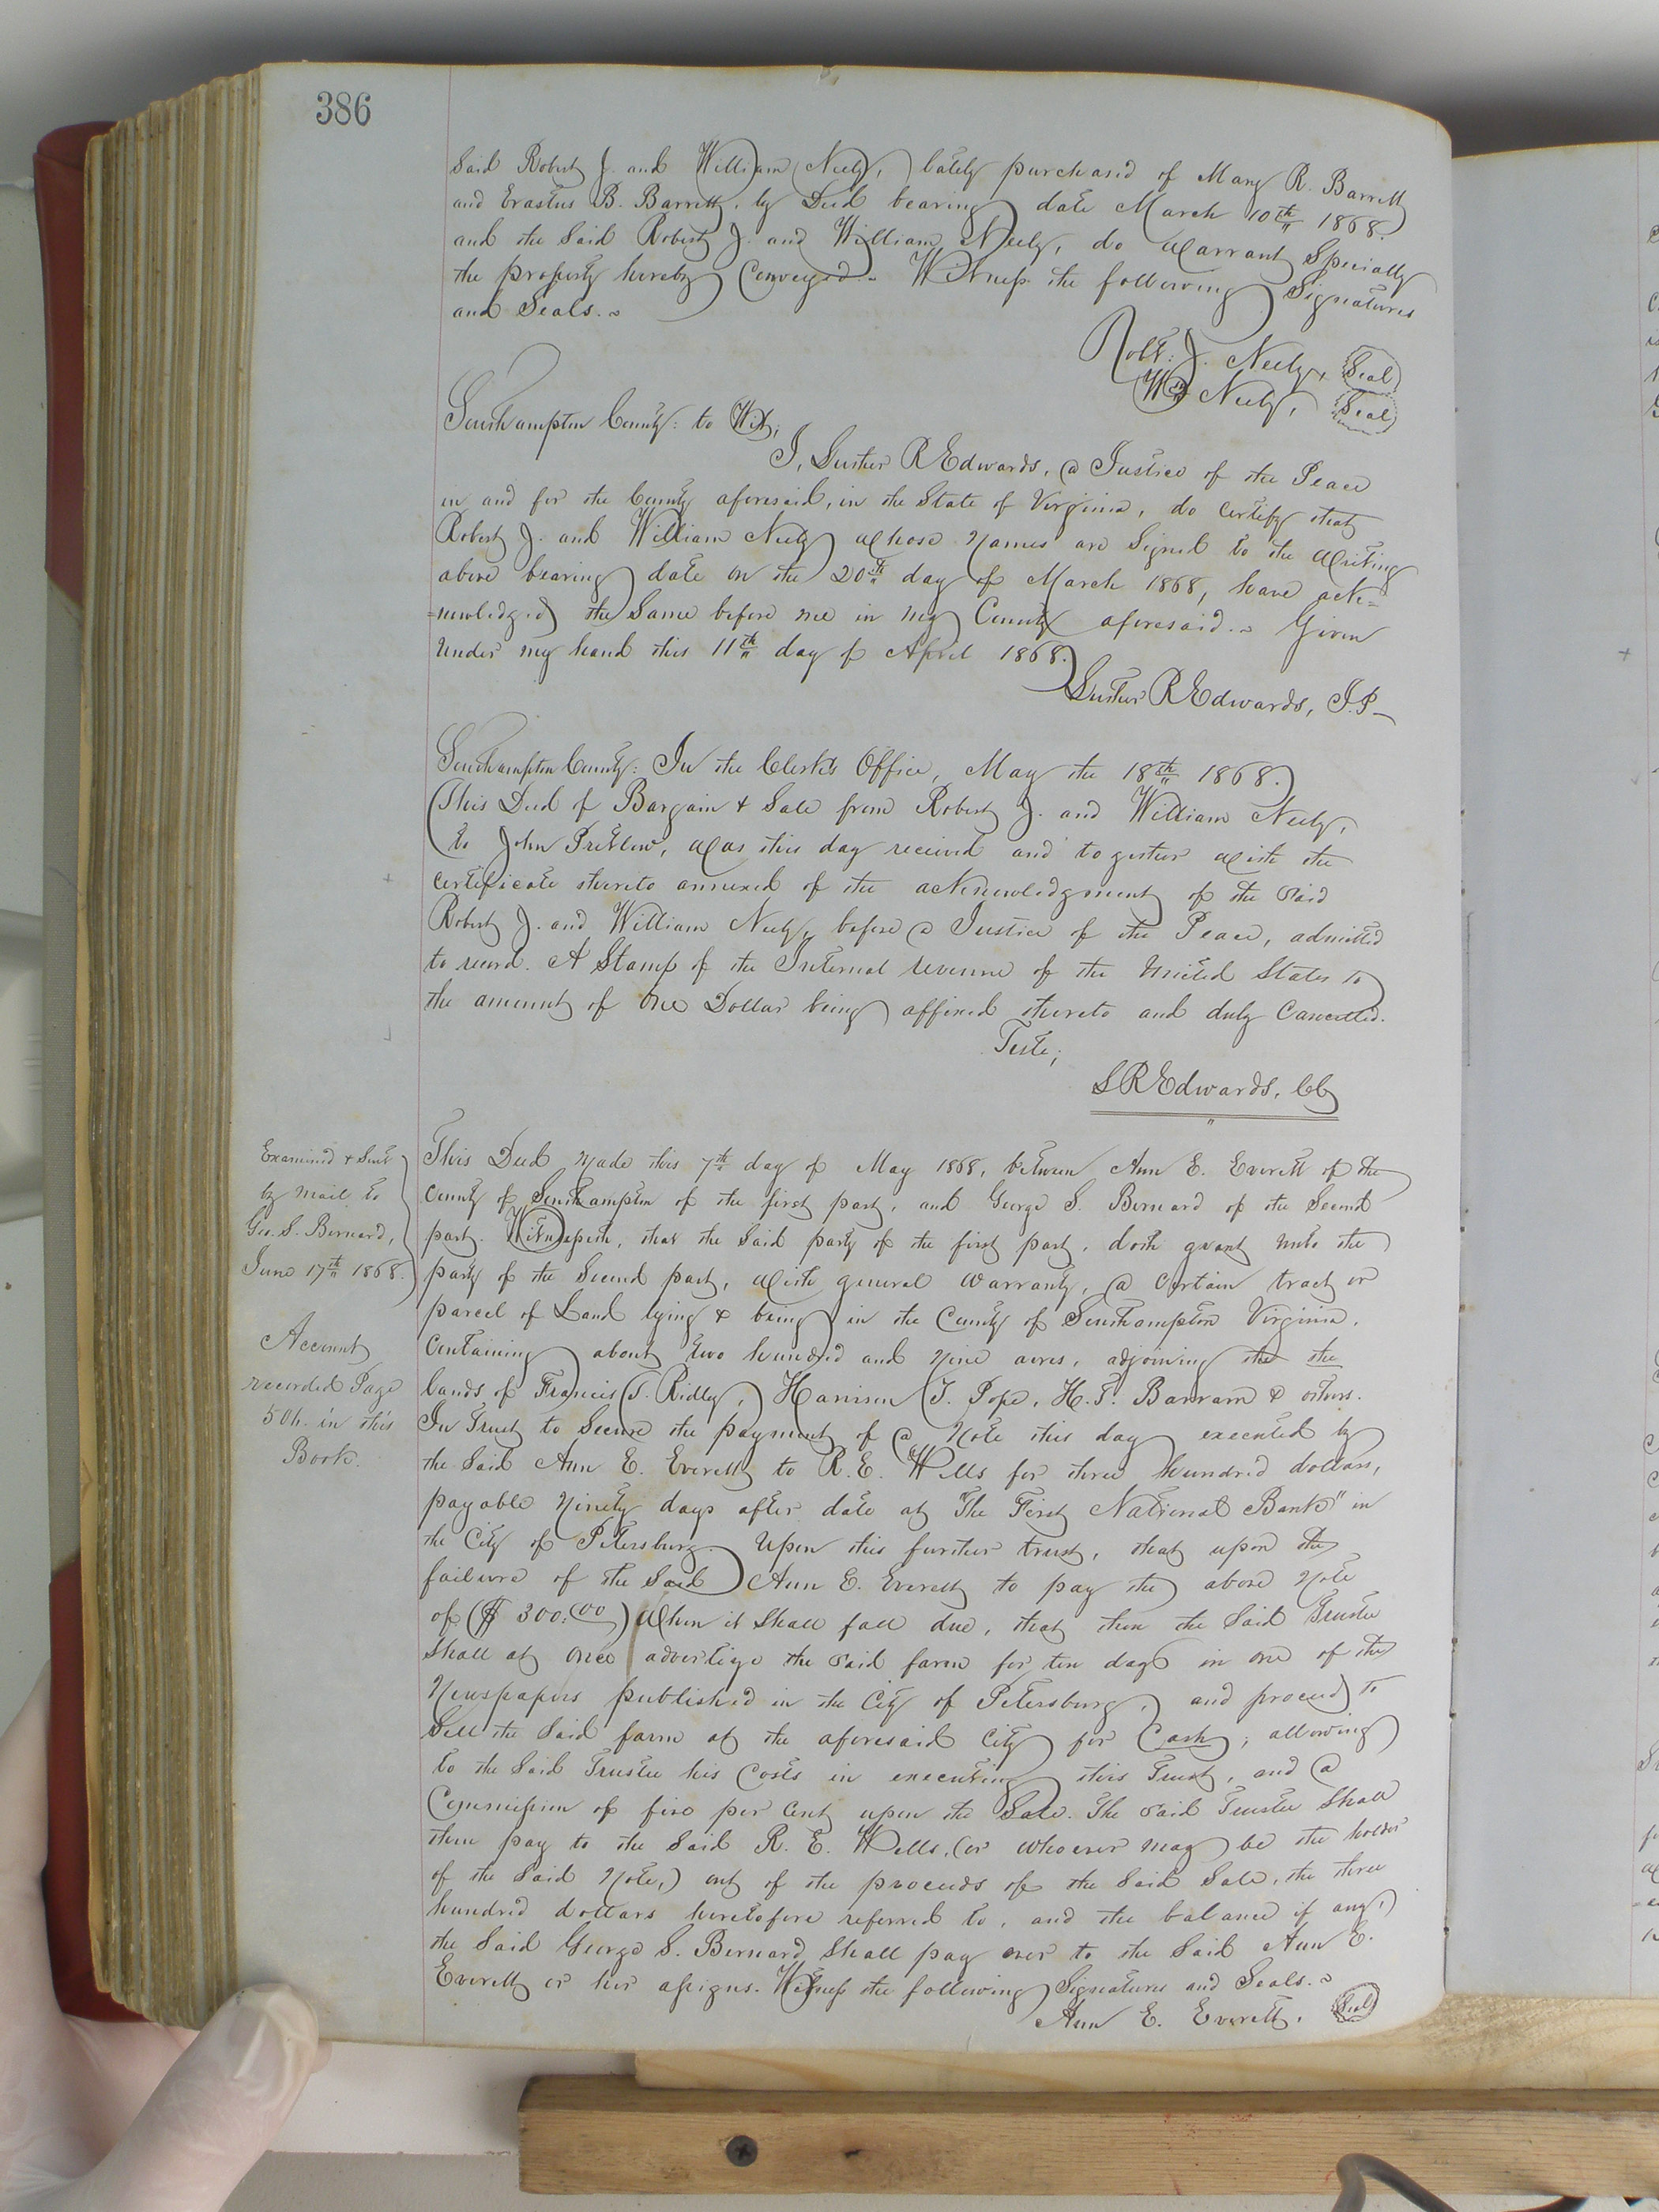 386
Said Robert J. and William Neely, lately purchased of Mary R. Barrett
and Erastus B. Barrett, by Deed bearing date March 10th 1868.
and the Said Robert J. and William Neely, do Warrant Specially
the property hereby Conveyed.~ Witness the following Signatures
and Seals.~
Robt: J. Neely, Seal
Wm Neely, Seal
Southampton County: to Wit;
I, Luther R Edwards, a Justice of the Peace
in and for the County aforesaid, in the State of Virginia, do Certify that
Robert J. and William Neely whose Names are Signed to the Writing
above bearing date on the 20th day of March 1868, have ack=
=nowledged the Same before me in my County aforesaid.~ Given
Under my hand this 11th day of April 1868.
Luther R Edwards, J.P—
Southampton County: In the Clerk's Office, May the 18th 1868.
This Deed of Bargain & Sale from Robert J. and William Neely,
to John Pretlow, was this day received and together with the
Certificate thereto annexed of the acknowledgment of the Said
Robert J. and William Neely, before a Justice of the Peace, admitted
to record. A Stamp of the Internal revenue of the United States to
the amount of One Dollar being affixed thereto and duly Cancelled.
Teste;
L R Edwards, CC
Examined & Sent
by mail to
Geo. S. Bernard,
June 17th 1868.
Account
recorded Page
504. in this
Book.
This Deed Made this 7th day of May 1868, between Ann E. Everett of the
County of Southampton of the first part, and George S. Bernard of the Second
part. Witnesseth, that the Said party of the first part, doth grant unto the
party of the Second part, with general Warranty, a Certain tract or
parcel of Land lying & being in the County of Southampton Virginia,
Containing about two hundred and Nine acres, adjoining the the
lands of Francis T. Ridley, Harrison T. Pope, H. T. Barram & others.
In Trust to Secure the payment of a Note this day executed by
the Said Ann E. Everett to R. E. Wells for three hundred dollars,
payable Ninety days after date at "The First National Bank" in
the City of Petersburg. Upon this further trust, that upon the
failure of the Said Ann E. Everett to pay the above Note
of ($300.00) When it Shall fall due, that then the Said Trustee
Shall at Once advertize the Said farm for ten days in one of the
Newspapers published in the City of Petersburg, and proceed to
Sell the Said farm at the aforesaid City for Cash; allowing
to the Said Trustee his Costs in executing this Trust, and a
Commission of five per Cent upon the Sale. The Said Trustee Shall
then pay to the Said R. E. Wells, (or Whoever may be the holder
of the Said Note,) out of the proceeds of the Said Sale, the three
hundred dollars heretofore referred to, and the balance if any,
the Said George S. Bernard Shall pay over to the Said Ann E.
Everett or her assigns. Witness the following Signatures and Seals.~
Ann E. Everett, Seal